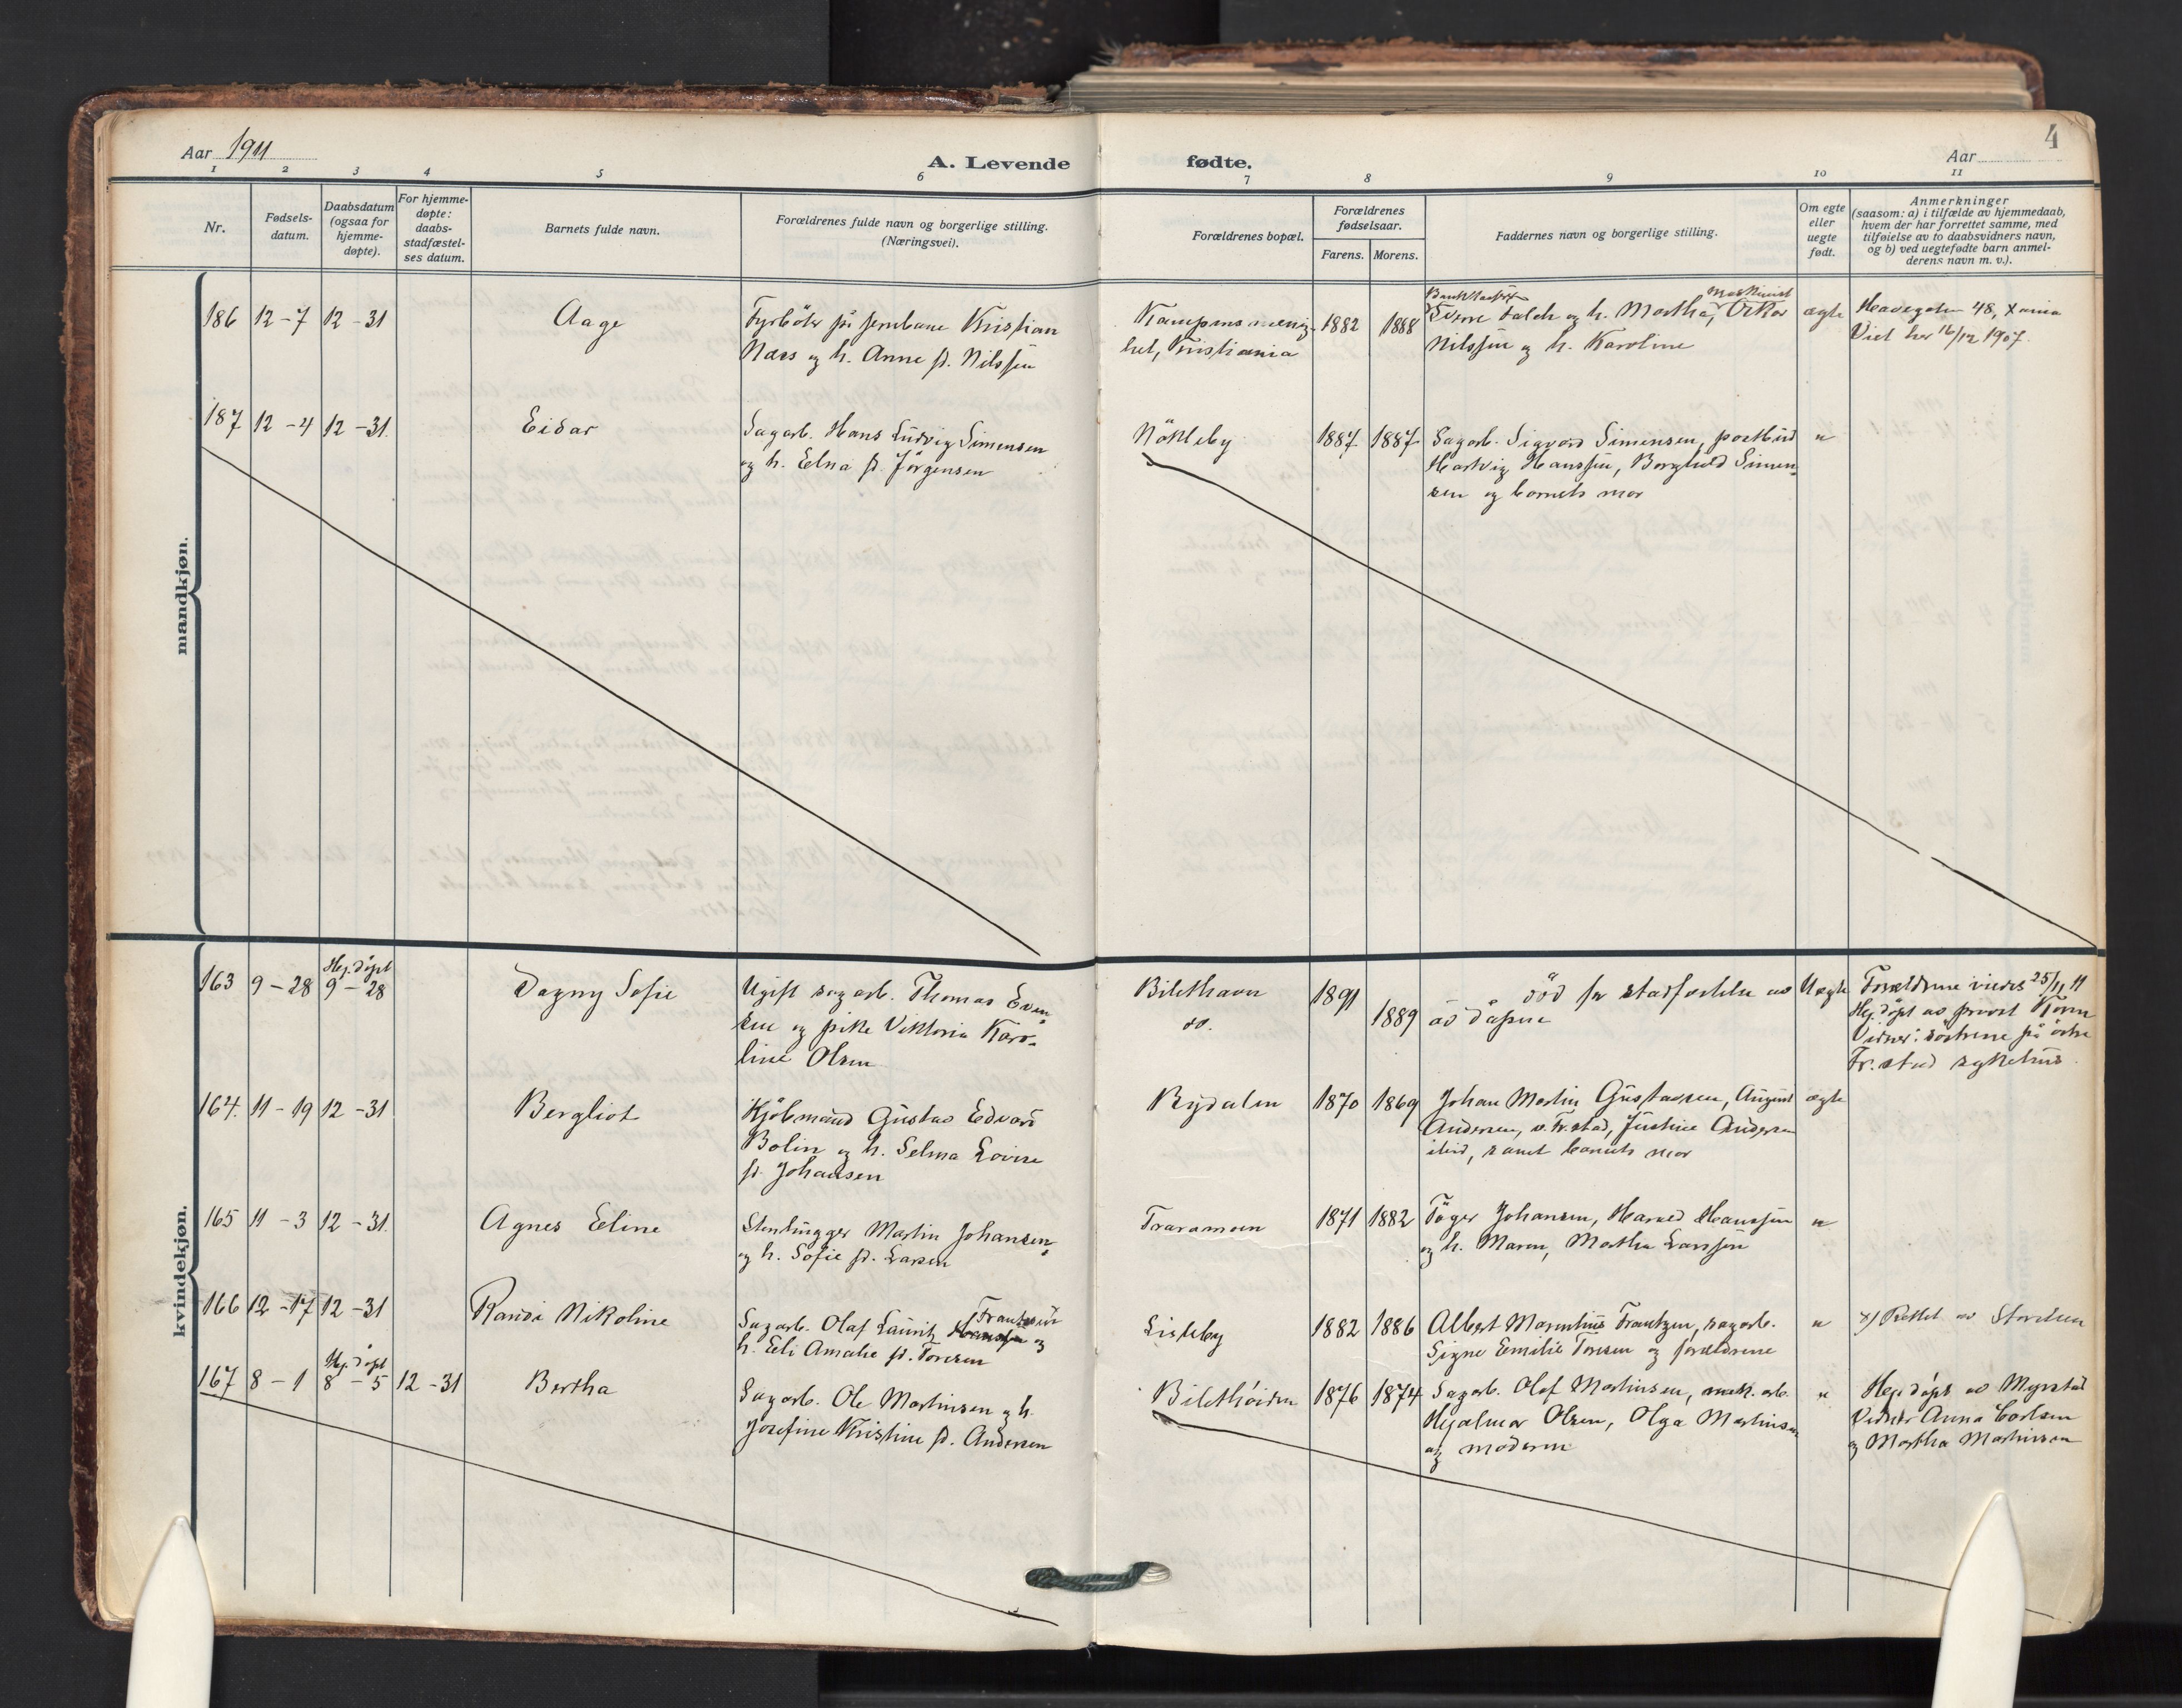 Aar 1911
A. Levende fødte.
Aar
4
1 2 3 4 5 6 7 8 9 10 11
Nr.
Fødsels-
datum.
Daabsdatum
(ogsaa for
hjemme-
døpte).
For hjemme-
døpte:
daabs-
stadfæstel-
ses datum.
Barnets fulde navn.
Forældrenes fulde navn og borgerlige stilling.
(Næringsvei).
Forældrenes bopæl.
Forældrenes
fødselsaar.
Farens. Morens.
Faddernes navn og borgerlige stilling.
Om egte
eller
uegte
født.
Anmerkninger
(saasom: a) i tilfælde av hjemmedaab,
hvem der har forrettet samme, med
tilføielse av to daabsvidners navn,
og b) ved uegtefødte barn anmel-
derens navn m. v.).
mandkjøn.
186 12-7 12-31
Aage
Fyrböter på jernbane Kristian
Næss og h. Anne f. Nilssen
Kampens menig-
het, Kristiania
1882 1888
Sverre Falch og h. Martha, Maskinist Oskar
Nilssen og h. Karoline
ægte
Havegaten 48, Xania
Viet her 16/12 1907.
187 12-4 12-31.
Eidar
Sagarb. Hans Ludvig Simensen
og h. Elna f. Jörgensen
Nökleby
1887 1887
Sagarb. Sigvard Simensen, postbud
Hartvig Hanssen, Borghild Simen-
sen og barnets mor
"
kvindekjøn.
163 9-28
Hej. döpt
9-28
Dagny Sofie
Ugift sagarb. Thomas Even-
sen og pike Viktoria Karo-
line Olsen
Bilethavn
do.
1891
1889
död før stadfæstelse av
av dåpen
Uægte
Forældrene viedes 25/11 11
Hej. döpt av provst Korn
Vidner: söstrene på östre
Fr.stad sykehus.
164. 11-19 12-31
Bergliot
Kjöbmand Gustav Edvard
Bolin og h. Selma Lovise
f. Johansen
Rydalen
1870 1869
Johan Martin Gustavsen, August
Andersen, v. Fr.stad, Justine Andersen
itid, samt barnets mor
ægte
165 11-3 12-31.
Agnes Eline
Stenhugger Martin Johansen
og h. Sofie f. Larsen
Traramoen
1871 1882
Töger Johansen, Harald Hanssen
og h. Maren, Martha Larssen
"
166 12-17 12-31
Randi Nikoline
Sagarb. Olaf Lauritz Frantzen og
h. Eli Amalie f. Toresen
Lisleby
1882 1886
Albert Marentius Frantzen, sagarb.
Signe Emilie Toresen og forældrene
"
x) Rettet av Storelsen
167 8-1
Hj. döpt
8-5 12-31
Bertha
Sagarb. Ole Martinsen og h.
Josefine Kristine f. Andersen
Bilethöiden
1876 1874
Sagarb. Olaf Martinsen, mek. arb.
Hjalmar Olsen, Olga Martinsen
og moderen
"
Hej. döpt av Myrstad
Vidner Anna Carlsen
og Martha Martinsen